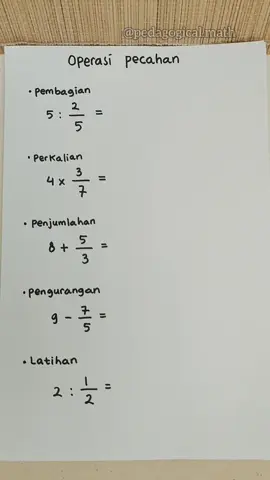 @pedagogical.math
Operasi pecahan
• Pembagian
5 : 2/5 =
• Perkalian
4 x 3/7 =
• Penjumlahan
8 + 5/3 =
• Pengurangan
9 - 7/5 =
• Latihan
2 : 1/2 =